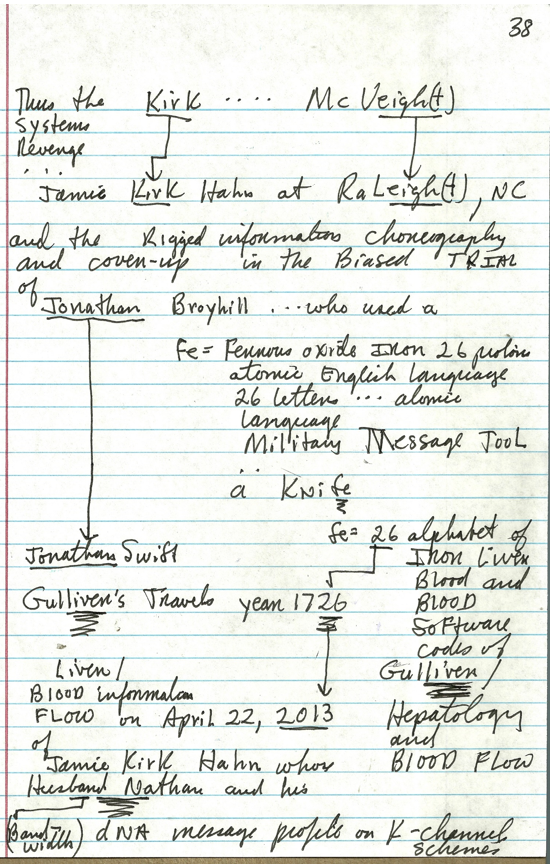 38
Thus the Kirk ..... McVeigh(t)
systems
Revenge
...
Jamie Kirk Hahn at RaLeigh(t), NC
and the Rigged information choreography
and cover-up in the Biased TRIAL
of
Jonathan Broyhill ... who used a
Fe = Ferrous oxide Iron 26 protons
atomic English language
26 letters ... atomic
language
Military Message Tool
..
a Knife
fe = 26 alphabet of
Jonathan Swift Iron Liver
Blood and
Gulliver's Travels year 1726 BLOOD
SOFTWARE
codes of
Liver/ Gulliver/
BLOOD information
FLOW on April 22, 2013 Hepatology
of and
Jamie Kirk Hahn whose BLOOD FLOW
Husband Nathan and his
(Band width) dNA message profits on K-channel
schemes